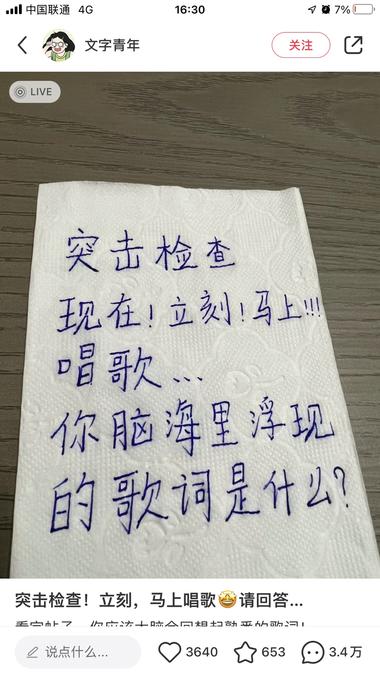 中国联通 4G 16:30 7%
文字青年 关注
LIVE
突击检查
现在！立刻！马上!!!
唱歌...
你脑海里浮现
的歌词是什么？
突击检查！立刻，马上唱歌🤩请回答...
看完帖子，你应该大脑会回想起熟悉的歌词！
说点什么... 3640 653 3.4万